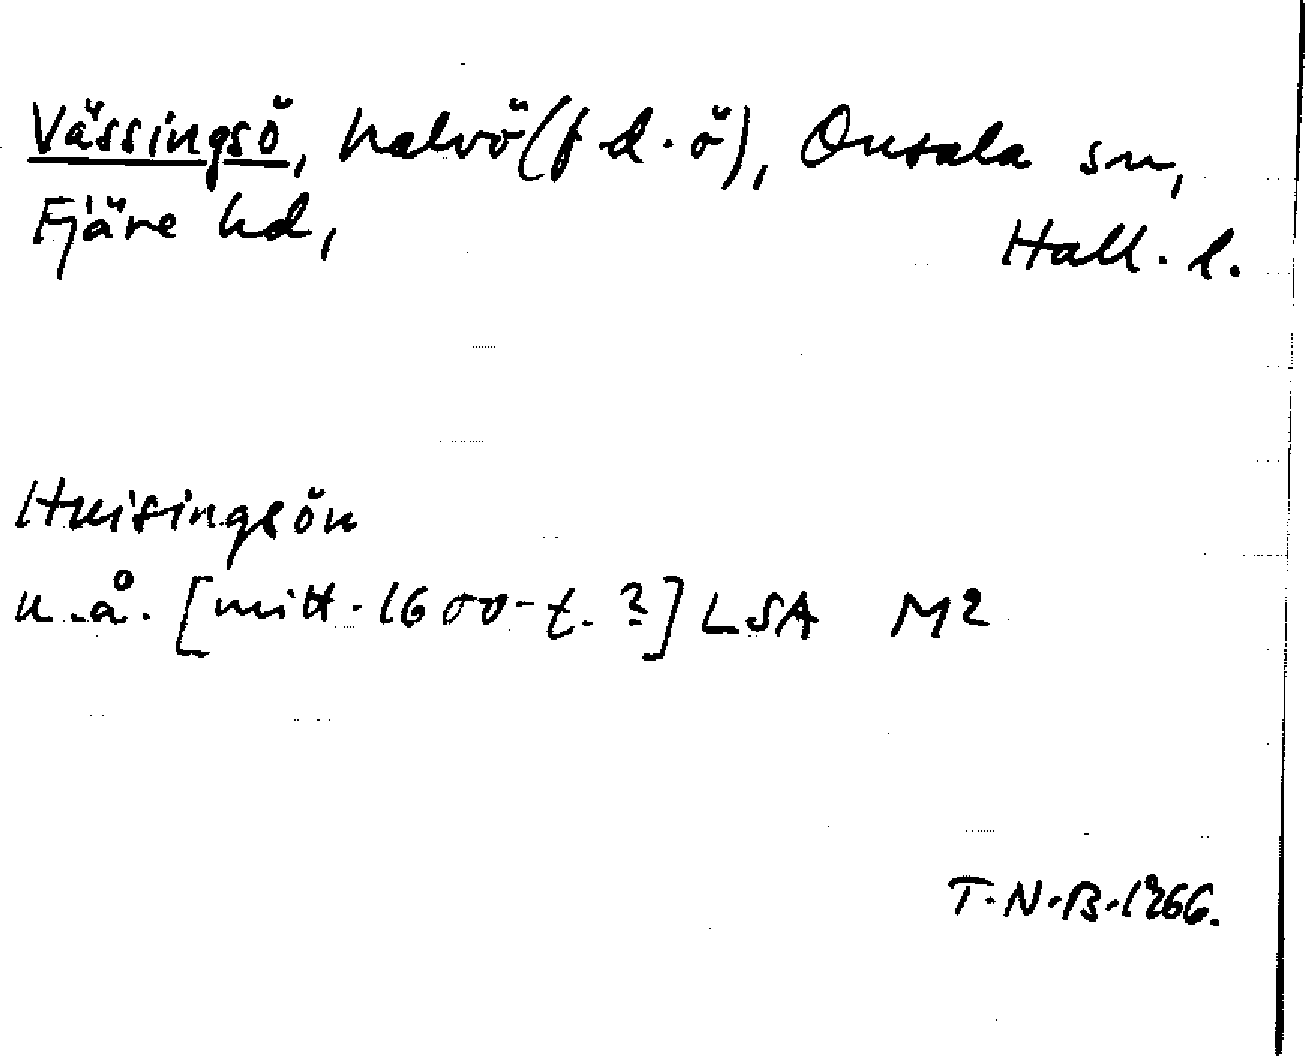 Vässingsö, halvö (f d. ö), Onsala sn,
Fjäre hd,
Hall. l.
Hvisingsön
u.å. [mitt. 1600-t. ?] LSA M2
T.N.B. 1966.